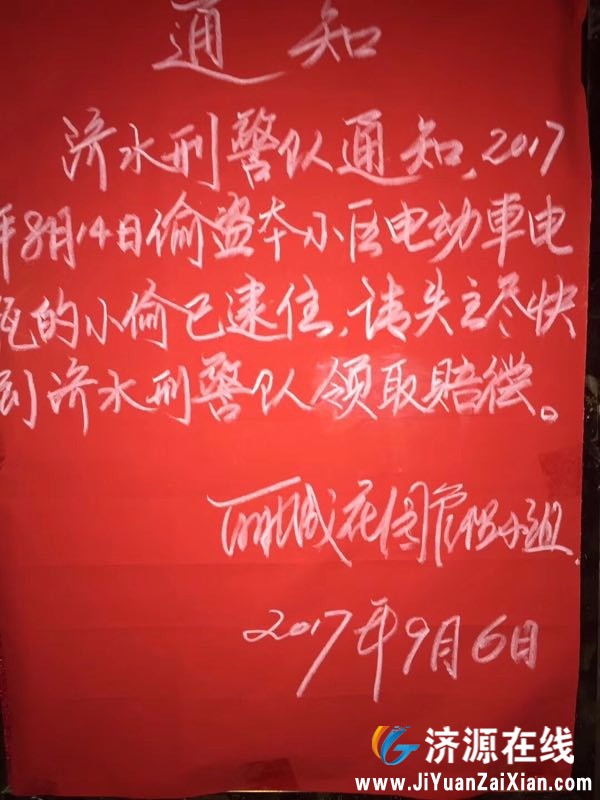 通知
济水刑警队通知,2017
年8月14日偷盗本小区电动車电
瓶的小偷已逮住,请失主尽快
到济水刑警队领取赔偿。
丽城花园管组小组
2017年9月6日
济源在线
www.JiYuanZaiXian.com